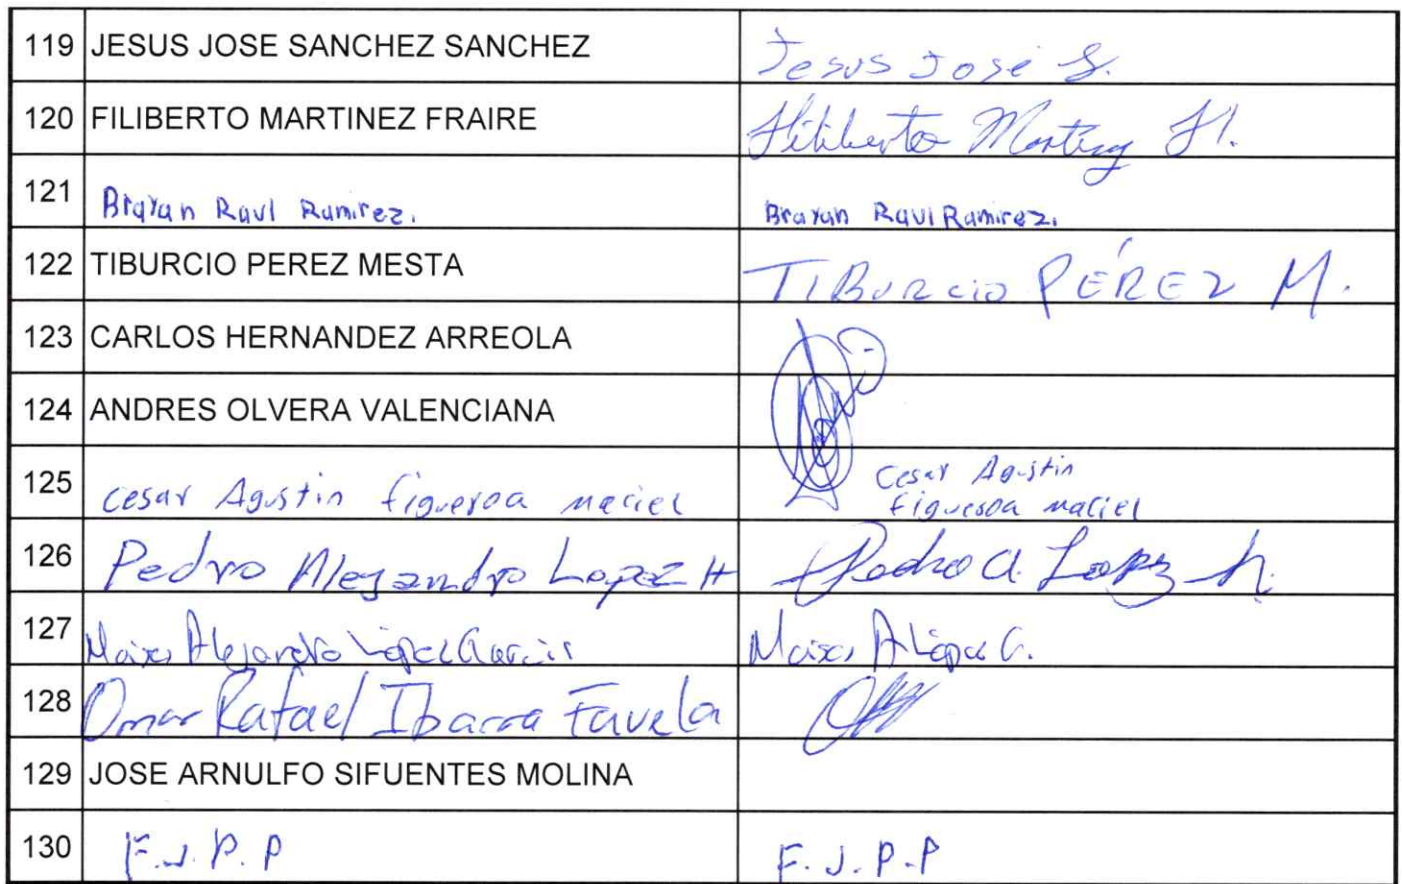 119 JESUS JOSE SANCHEZ SANCHEZ Jesus José S.
120 FILIBERTO MARTINEZ FRAIRE Filiberto
121 Brayan Raul Ramirez. Brayan Raul Ramirez.
122 TIBURCIO PEREZ MESTA TIBURCIO PÉREZ M.
123 CARLOS HERNANDEZ ARREOLA
124 ANDRES OLVERA VALENCIANA
125 Cesar Agustin figueroa maciel Cesar Agustin
figueroa maciel
126 Pedro Alejandro Lopez H Pedro A. Lopez h.
127 Moises Alejandro López García Moises A López G.
128 Omar Rafael Ibarra Favela
129 JOSE ARNULFO SIFUENTES MOLINA
130 F.J.P.P F.J.P.P